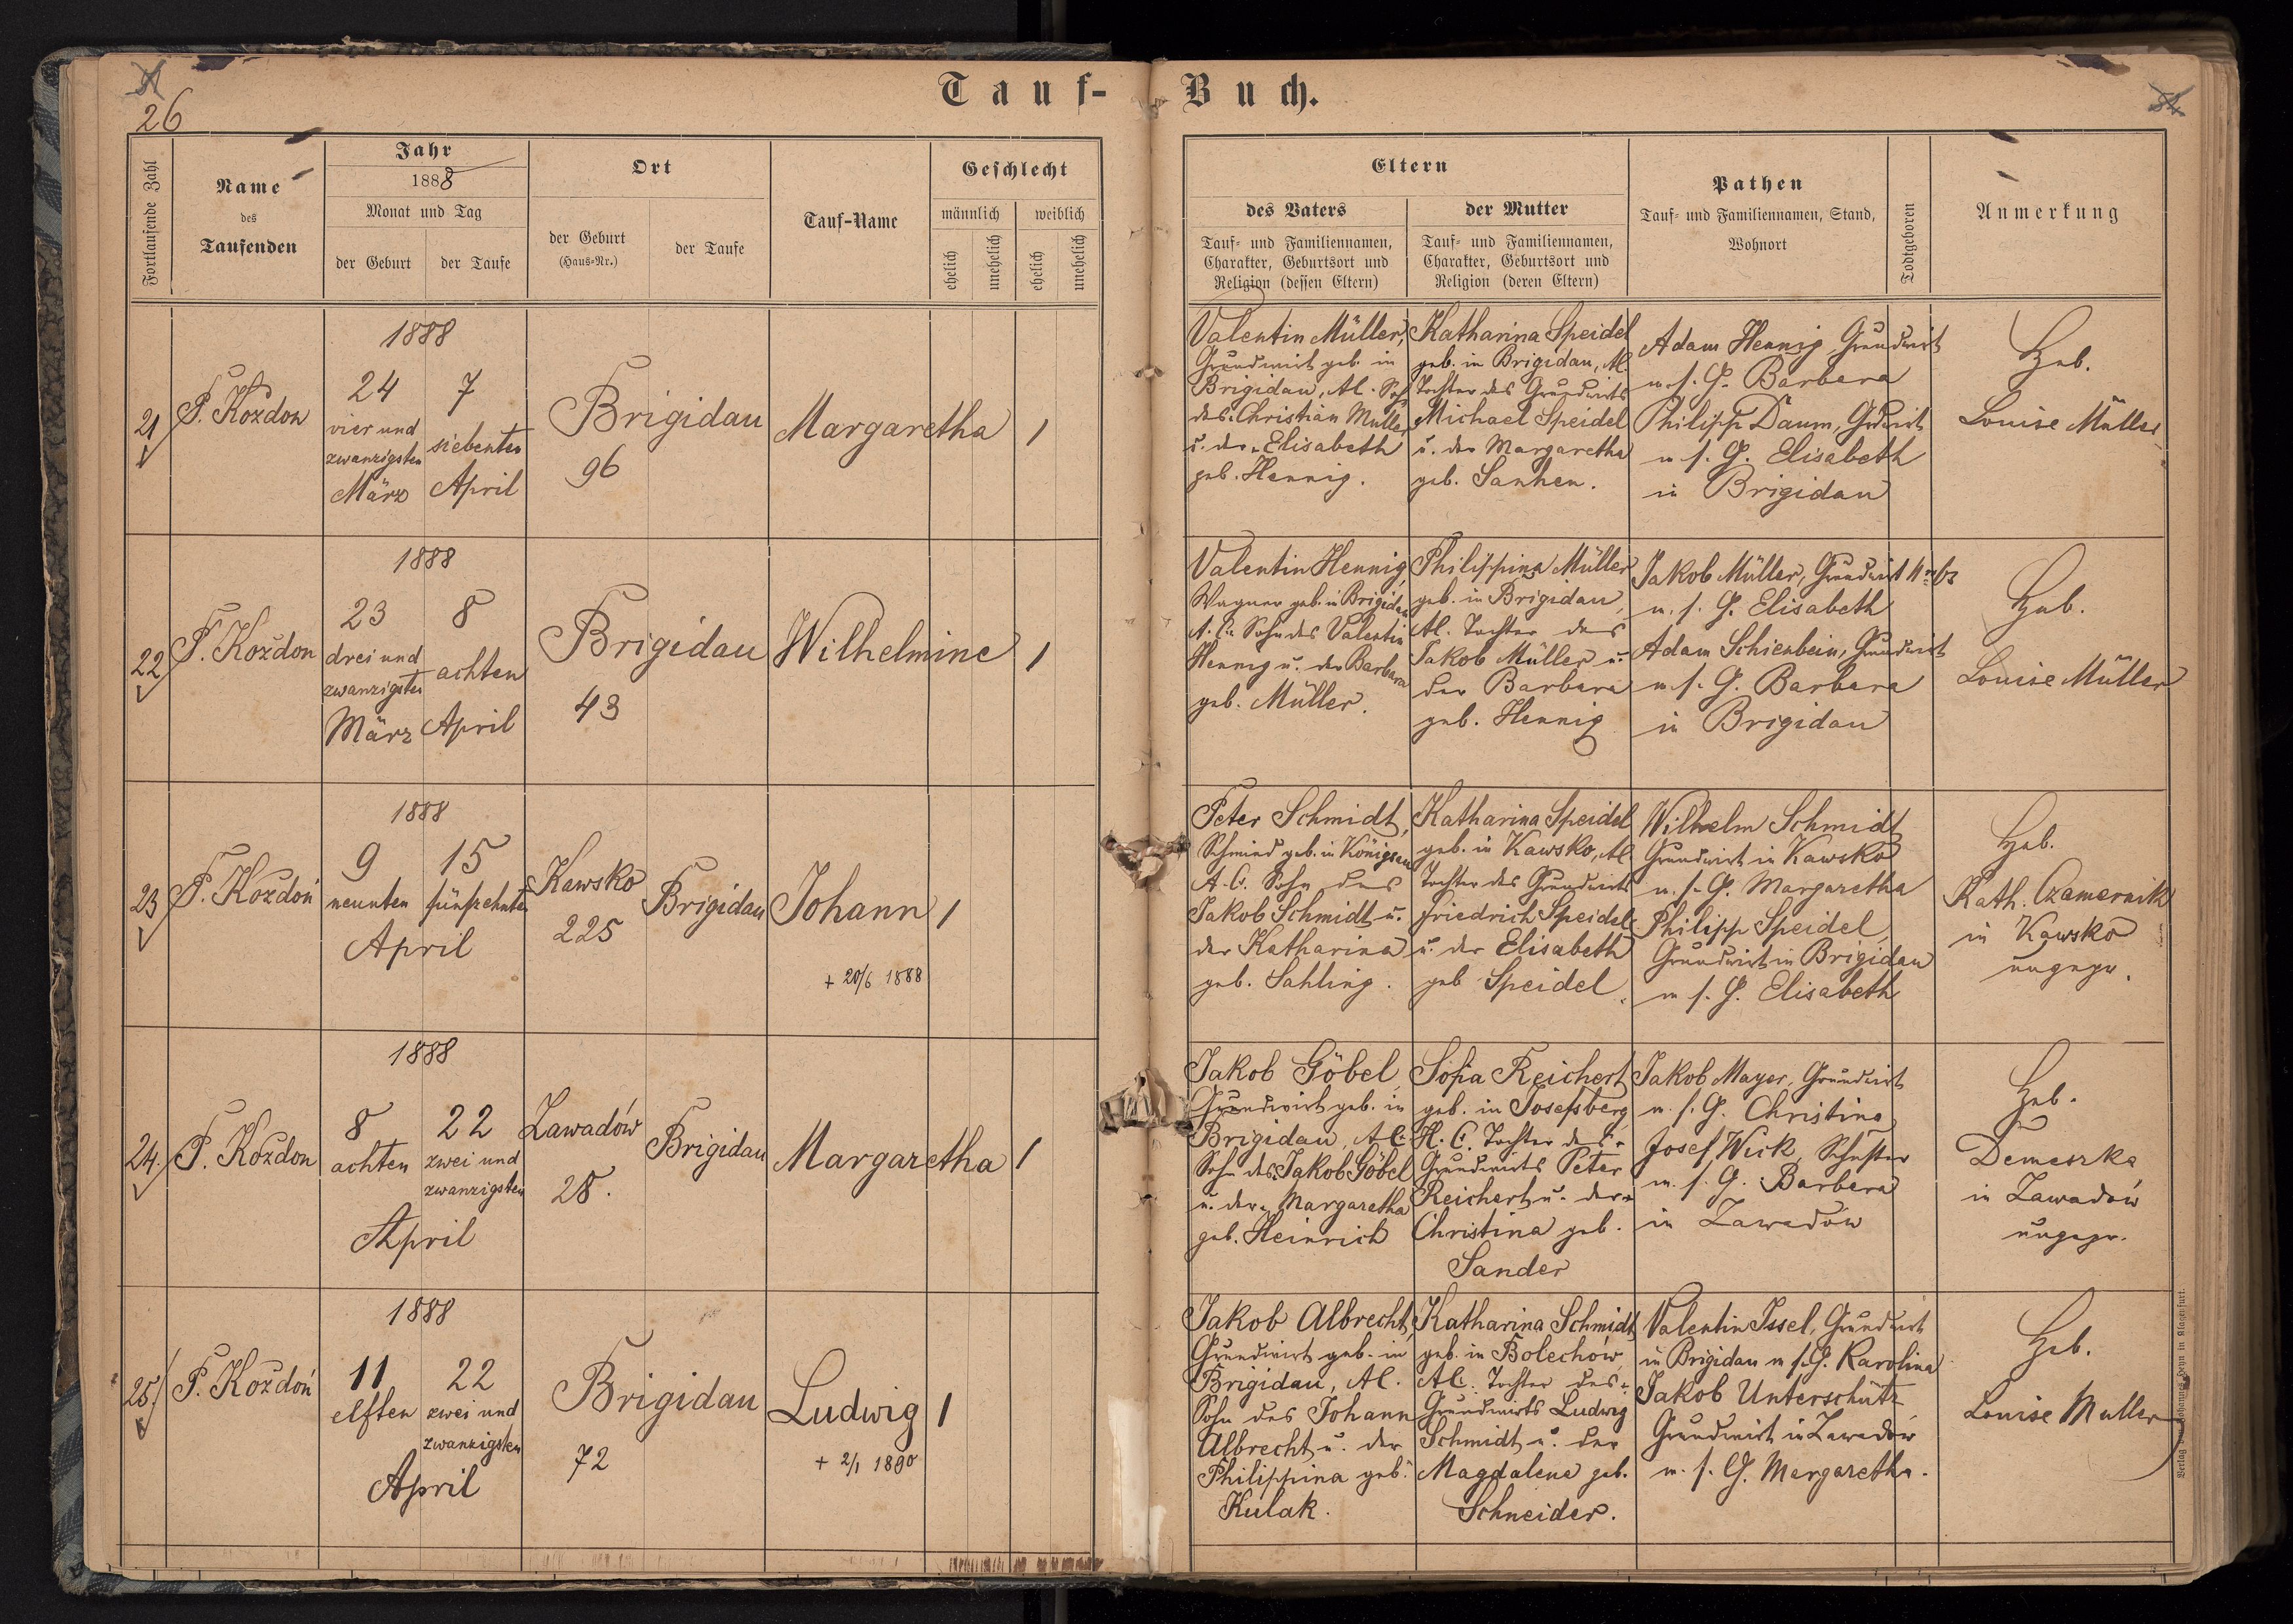 26
Tauf-Buch.
Fortlaufende Zahl
Name
des
Taufenden
Jahr
1888
Monat und Tag
der Geburt
der Taufe
Ort
der Geburt
(Haus-Nr.)
der Taufe
Tauf-Name
Geschlecht
männlich
weiblich
ehelich
unehelich
ehelich
unehelich
Eltern
des Vaters
Tauf- und Familiennamen,
Charakter, Geburtsort und
Religion (dessen Eltern)
der Mutter
Tauf- und Familiennamen,
Charakter, Geburtsort und
Religion (deren Eltern)
Pathen
Tauf- und Familiennamen, Stand,
Wohnort
Todtgeboren
Anmerkung
21
P. Kozdon
1888
24
vier und
zwanzigsten
März
7
siebenten
April
Brigidau
96
Margaretha
1
Valentin Müller,
Grundwirt geb. in
Brigidau, AC. Sohn
des Christian Müller
u. der Elisabeth
geb. Hennig.
Katharina Speidel
geb. in Brigidau, AC.
Tochter des Grundwirts
Michael Speidel
u. der Margaretha
geb.
Adam Hennig, Grundwirt
m. s. G. Barbara
Philipp Daum, Gdwirt
m. s. G. Elisabeth
in Brigidau
Heb.
Louise Müller
22
P. Kozdon
1888
23
drei und
zwanzigsten
März
8
achten
April
Brigidau
43
Wilhelmine
1
Valentin Hennig,
Wagner geb. in Brigidau
A. C. Sohn des Valentin
Hennig u. der Barbara
geb. Müller.
Philippina Müller
geb. in Brigidau,
AC. Tochter des
Jakob Müller u.
der Barbara
geb. Hennig
Jakob Müller, Grundwirt
m. s. G. Elisabeth
Adam Schienbein, Grundwirt
m. s. G. Barbara
in Brigidau
Heb.
Louise Müller
23
P. Kozdoń
1888
9
neunten
15
fünfzehnten
April
Kawsko
225
Brigidau
Johann
+ 20/6 1888
1
Peter Schmidt,
Schmied geb. in Königsau
A. C. Sohn des
Jakob Schmidt u.
der Katharina
geb. Sahling.
Katharina Speidel
geb. in Kawsko, AC.
Tochter des Grundwirts
Friedrich Speidel
u. der Elisabeth
geb Speidel.
Wilhelm Schmidt
Grundwirt in Kawsko
m. s. G. Margaretha
Philipp Speidel,
Grundwirt in Brigidau
m s. G. Elisabeth
Heb.
Kath. Czamernik
in Kawsko
ungepr.
24.
P. Kozdon
1888
8
achten
22
zwei und
zwanzigsten
April
Zawadów
28.
Brigidau
Margaretha
1
Jakob Göbel
Grundwirt geb. in
Brigidau, AC.
Sohn des Jakob Göbel
u. der Margaretha
geb. Heinrich
Sofia Reichert
geb. in Josefsberg
H. C. Tochter des
Grundwirts Peter
Reichert u. der
Christina geb.
Sander
Jakob Mayer, Grundwirt
m. s. G. Christina
Josef Wick, Schuster
m. s. G. Barbara
in Zawadów
Heb.
Demeszka
in Zawadów
ungepr.
25.
P. Kozdoń
1888
11
elften
22
zwei und
zwanzigsten
April
Brigidau
72
Ludwig
+ 2/1 1890
1
Jakob Albrecht,
Grundwirt geb. in
Brigidau, AC.
Sohn des Johann
Albrecht u. der
Philippina geb.
Kulak.
Katharina Schmidt
geb. in Bolechów,
AC. Tochter des
Grundwirts Ludwig
Schmidt u. der
Magdalena geb.
Schneider.
Valentin Issel, Grundwirt
in Brigidau m s. G. Karolina
Jakob Unterschütz
Grundwirt in Zawadów
m. s. G. Margaretha.
Heb.
Louise Muller